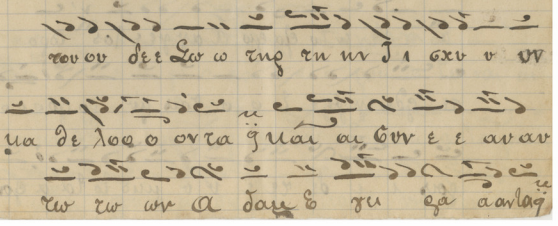 του ου δε ε Σω ω τηρ τη ην ἰ ι σχυ υ υν
κα θε λο ο ο ον τα q̈ και αι συν ε ε αν αν
τω τω ων Α δαμ Ε γει ρα α αν τα q̈